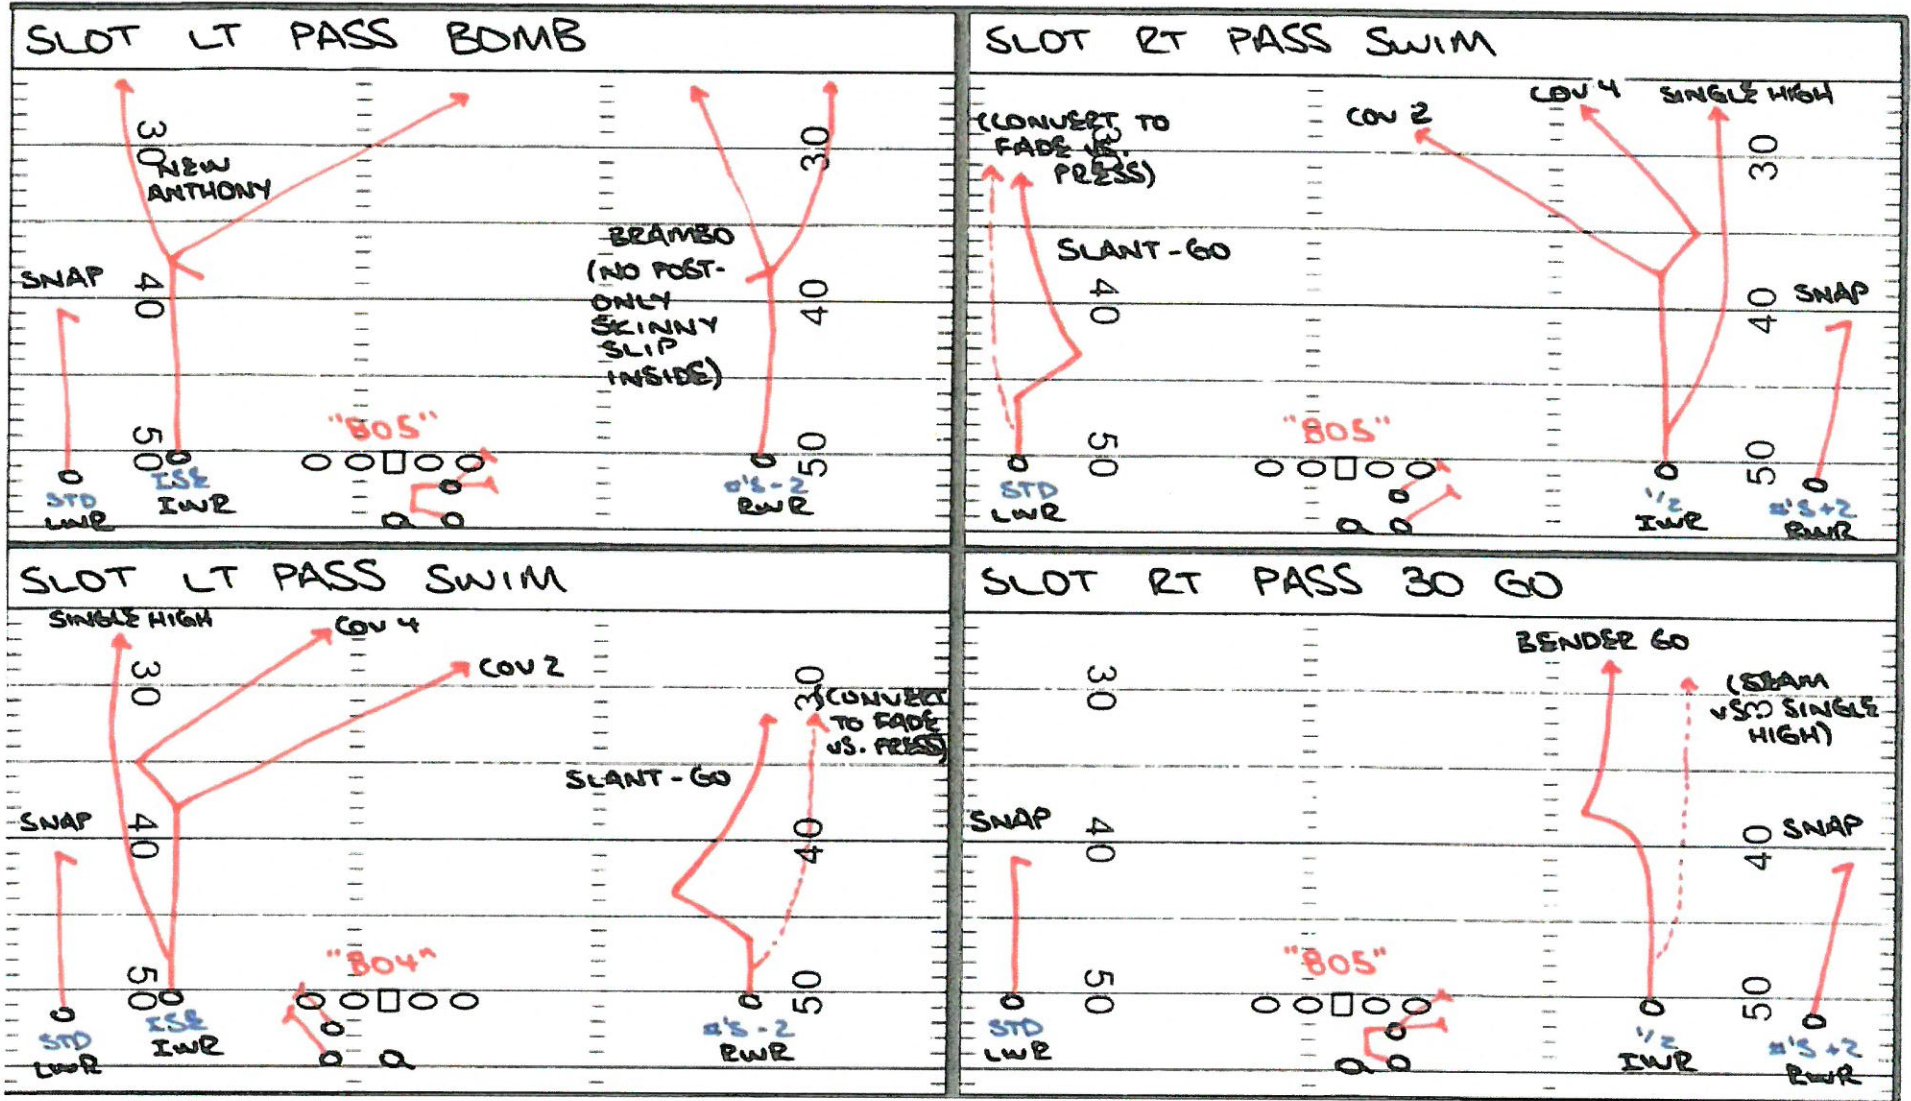 SLOT LT PASS BOMB
30
30
NEW
ANTHONY
SNAP
40
BRAMBO
(NO POST-
ONLY
SKINNY
SLIP
INSIDE)
40
"805"
50
50
STD
LWR
ISE
IWR
#'S-2
RWR
SLOT RT PASS SWIM
(CONVERT TO
FADE VS.
PRESS)
COV 2
COV 4
SINGLE HIGH
30
30
SLANT-GO
40
40
SNAP
"805"
50
50
STD
LWR
1/2
IWR
#'S+2
RWR
SLOT LT PASS SWIM
SINGLE HIGH
COV 4
COV 2
30
30
(CONVERT
TO FADE
VS. PRESS)
SLANT-GO
SNAP
40
40
"804"
50
50
STD
LWR
ISE
IWR
#'S-2
RWR
SLOT RT PASS 30 GO
BENDER GO
30
30
(SEAM
VS SINGLE
HIGH)
SNAP
40
40
SNAP
"805"
50
50
STD
LWR
1/2
IWR
#'S+2
RWR